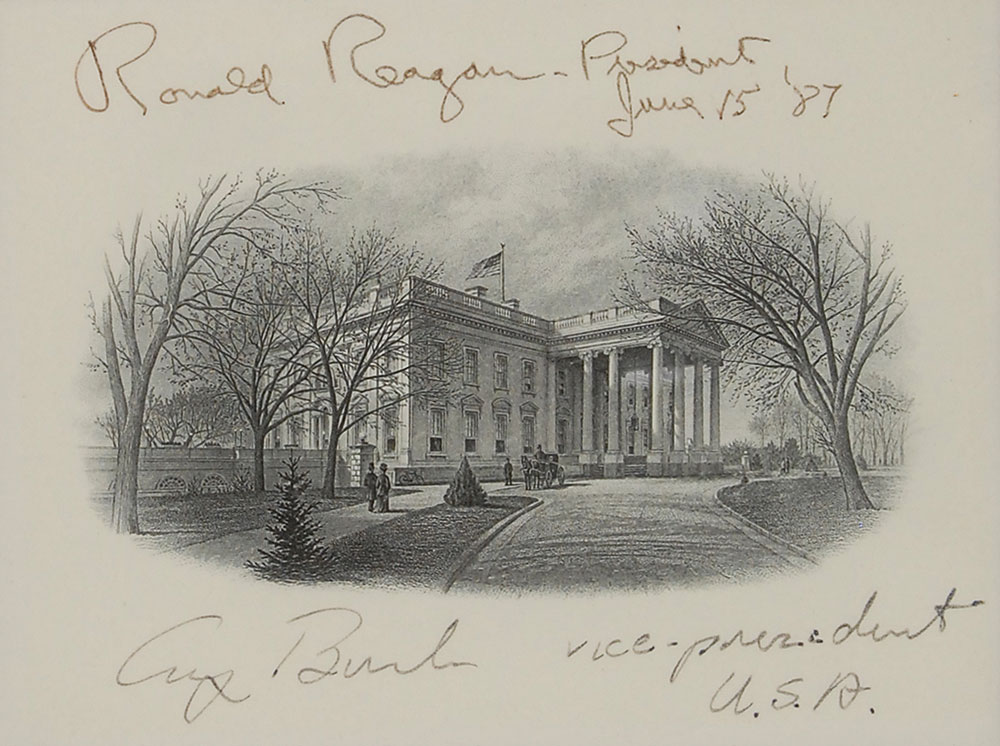 Ronald Reagan - President
June 15, '87
Bush vice-president
U.S.A.